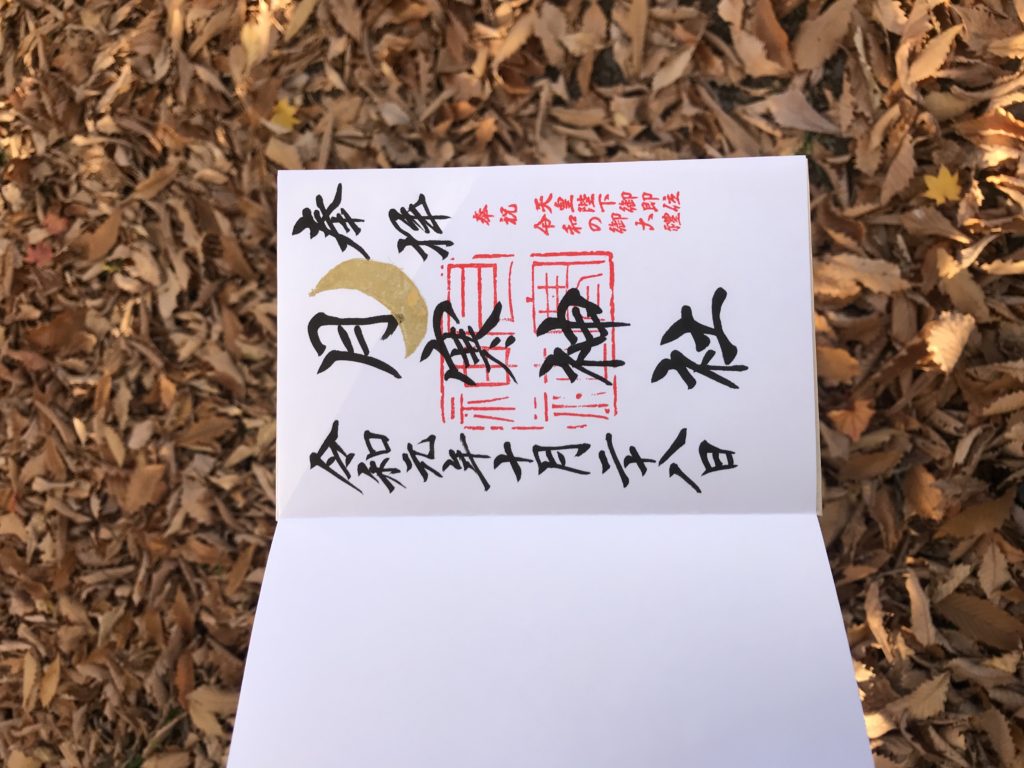 奉拝
奉祝
天皇陛下御即位
令和の御大禮
月寒神社
令和元年十月二十八日